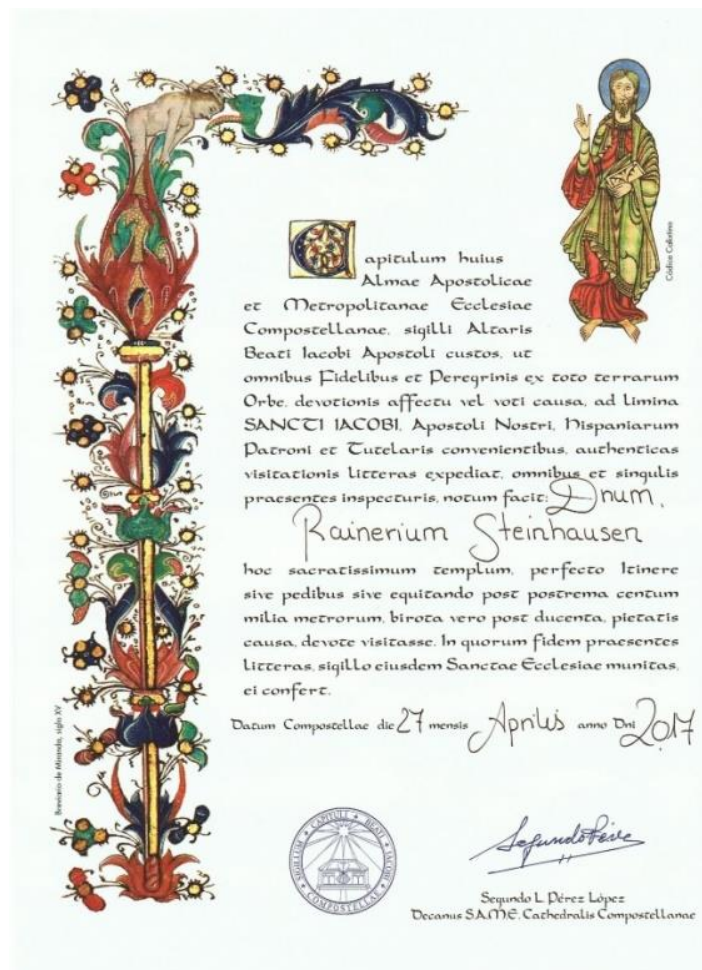 Códice Calixtino
Capitulum huius
Almae Apostolicae
et Metropolitanae Ecclesiae
Compostellanae, sigilli Altaris
Beati Iacobi Apostoli custos, ut
omnibus Fidelibus et Peregrinis ex toto terrarum
Orbe, devotionis affectu vel voti causa, ad limina
SANCTI IACOBI, Apostoli Nostri, Hispaniarum
Patroni et Tutelaris convenientibus, authenticas
visitationis litteras expediat, omnibus et singulis
praesentes inspecturis, notum facit: Dnum,
Rainerium Steinhausen
hoc sacratissimum templum, perfecto Itinere
sive pedibus sive equitando post postrema centum
milia metrorum, birota vero post ducenta, pietatis
causa, devote visitasse. In quorum fidem praesentes
litteras, sigillo eiusdem Sanctae Ecclesiae munitas,
ei confert.
Datum Compostellae die 27 mensis Aprilis anno Dni 2017
Breviario de Miranda, siglo XV
SIGILLUM CAPITULI BEATI IACOBI
COMPOSTELLAE
Segundo L. Pérez López
Decanus S.A.M.E. Cathedralis Compostellanae